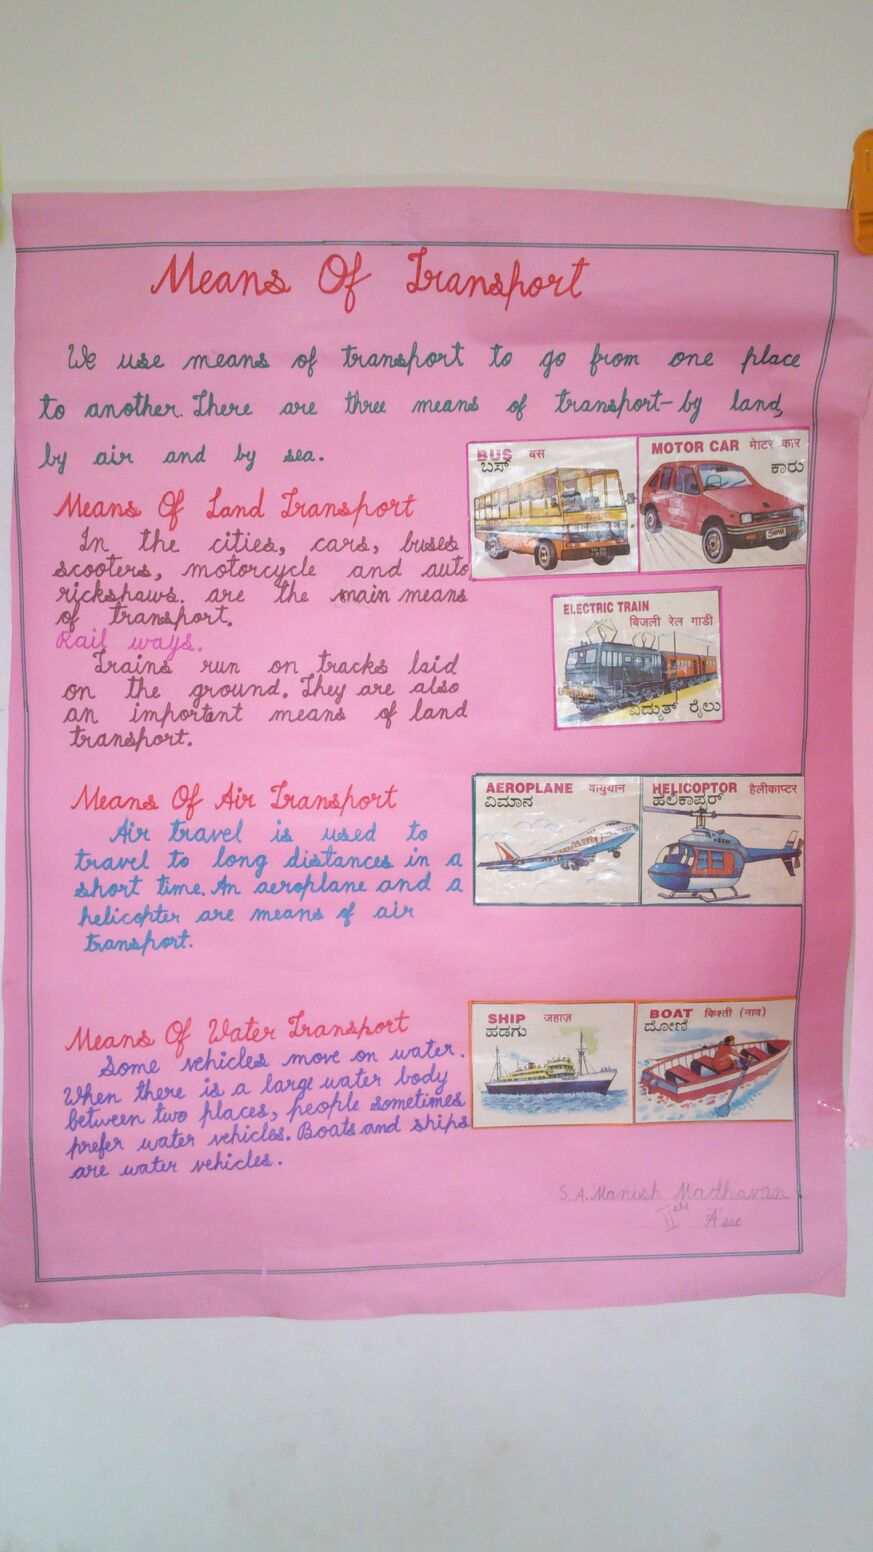 Means Of Transport
We use means of transport to go from one place
to another. There are three means of transport-by land,
by air and by sea.
BUS बस
ಬಸ್
MOTOR CAR मोटर कार
ಕಾರು
Means Of Land Transport
In the cities, cars, buses
scooters, motorcycle and auto
rickshaws. are the main means
of transport.
Rail ways.
Trains run on tracks laid
on the ground. They are also
an important means of land
transport.
ELECTRIC TRAIN
बिजली रेल गाडी
ವಿದ್ಯುತ್ ರೈಲು
Means Of Air Transport
Air travel is used to
travel to long distances in a
short time. An aeroplane and a
helicopter are means of air
transport.
AEROPLANE वायुयान
ವಿಮಾನ
HELICOPTOR हैलीकाप्टर
ಹೆಲಿಕಾಪ್ಟರ್
Means Of Water Transport
Some vehicles move on water.
When there is a large water body
between two places, people sometimes
prefer water vehicles. Boats and ships
are water vehicles.
SHIP जहाज़
ಹಡಗು
BOAT किश्ती (नाव)
ದೋಣಿ
S.A. Manish Madhavan
II std 'A' sec